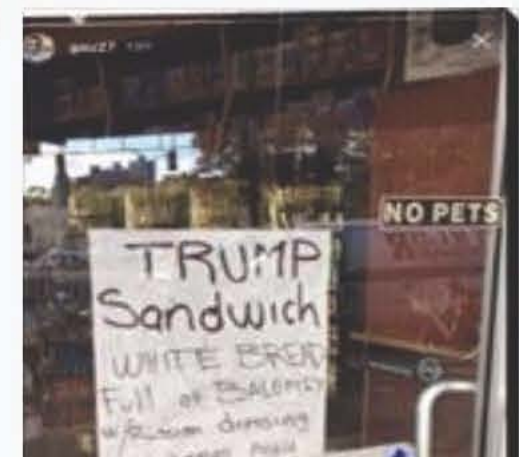 NO PETS
TRUMP
Sandwich
WHITE BREAD
Full of BALONEY
w/Russian dressing